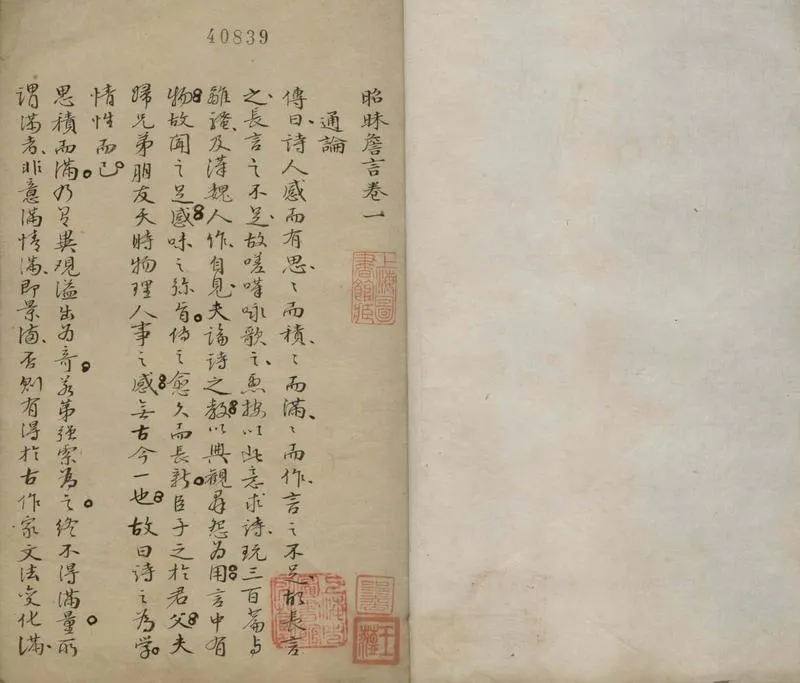 40839
昭昧詹言卷一
上海圖書館臧
通論
傳曰詩人感而有思〻而積〻而滿〻而作言之不足故長言
之長言之不足故嗟嘆咏歌之愚按以此意求詩玩三百篇与
離騷及漢魏人作自見夫論詩之教以興觀羣怨为用言中有
物故聞之足感味之弥旨傳之愈久而長新臣子之於君父夫
婦兄弟朋友天時物理人事之感無古今一也故曰詩之為学
情性而已
思積而滿乃有異觀溢出为奇若第强索為之終不得滿量所
謂滿者非意滿情滿即景滿否則有得於古作家文法变化滿